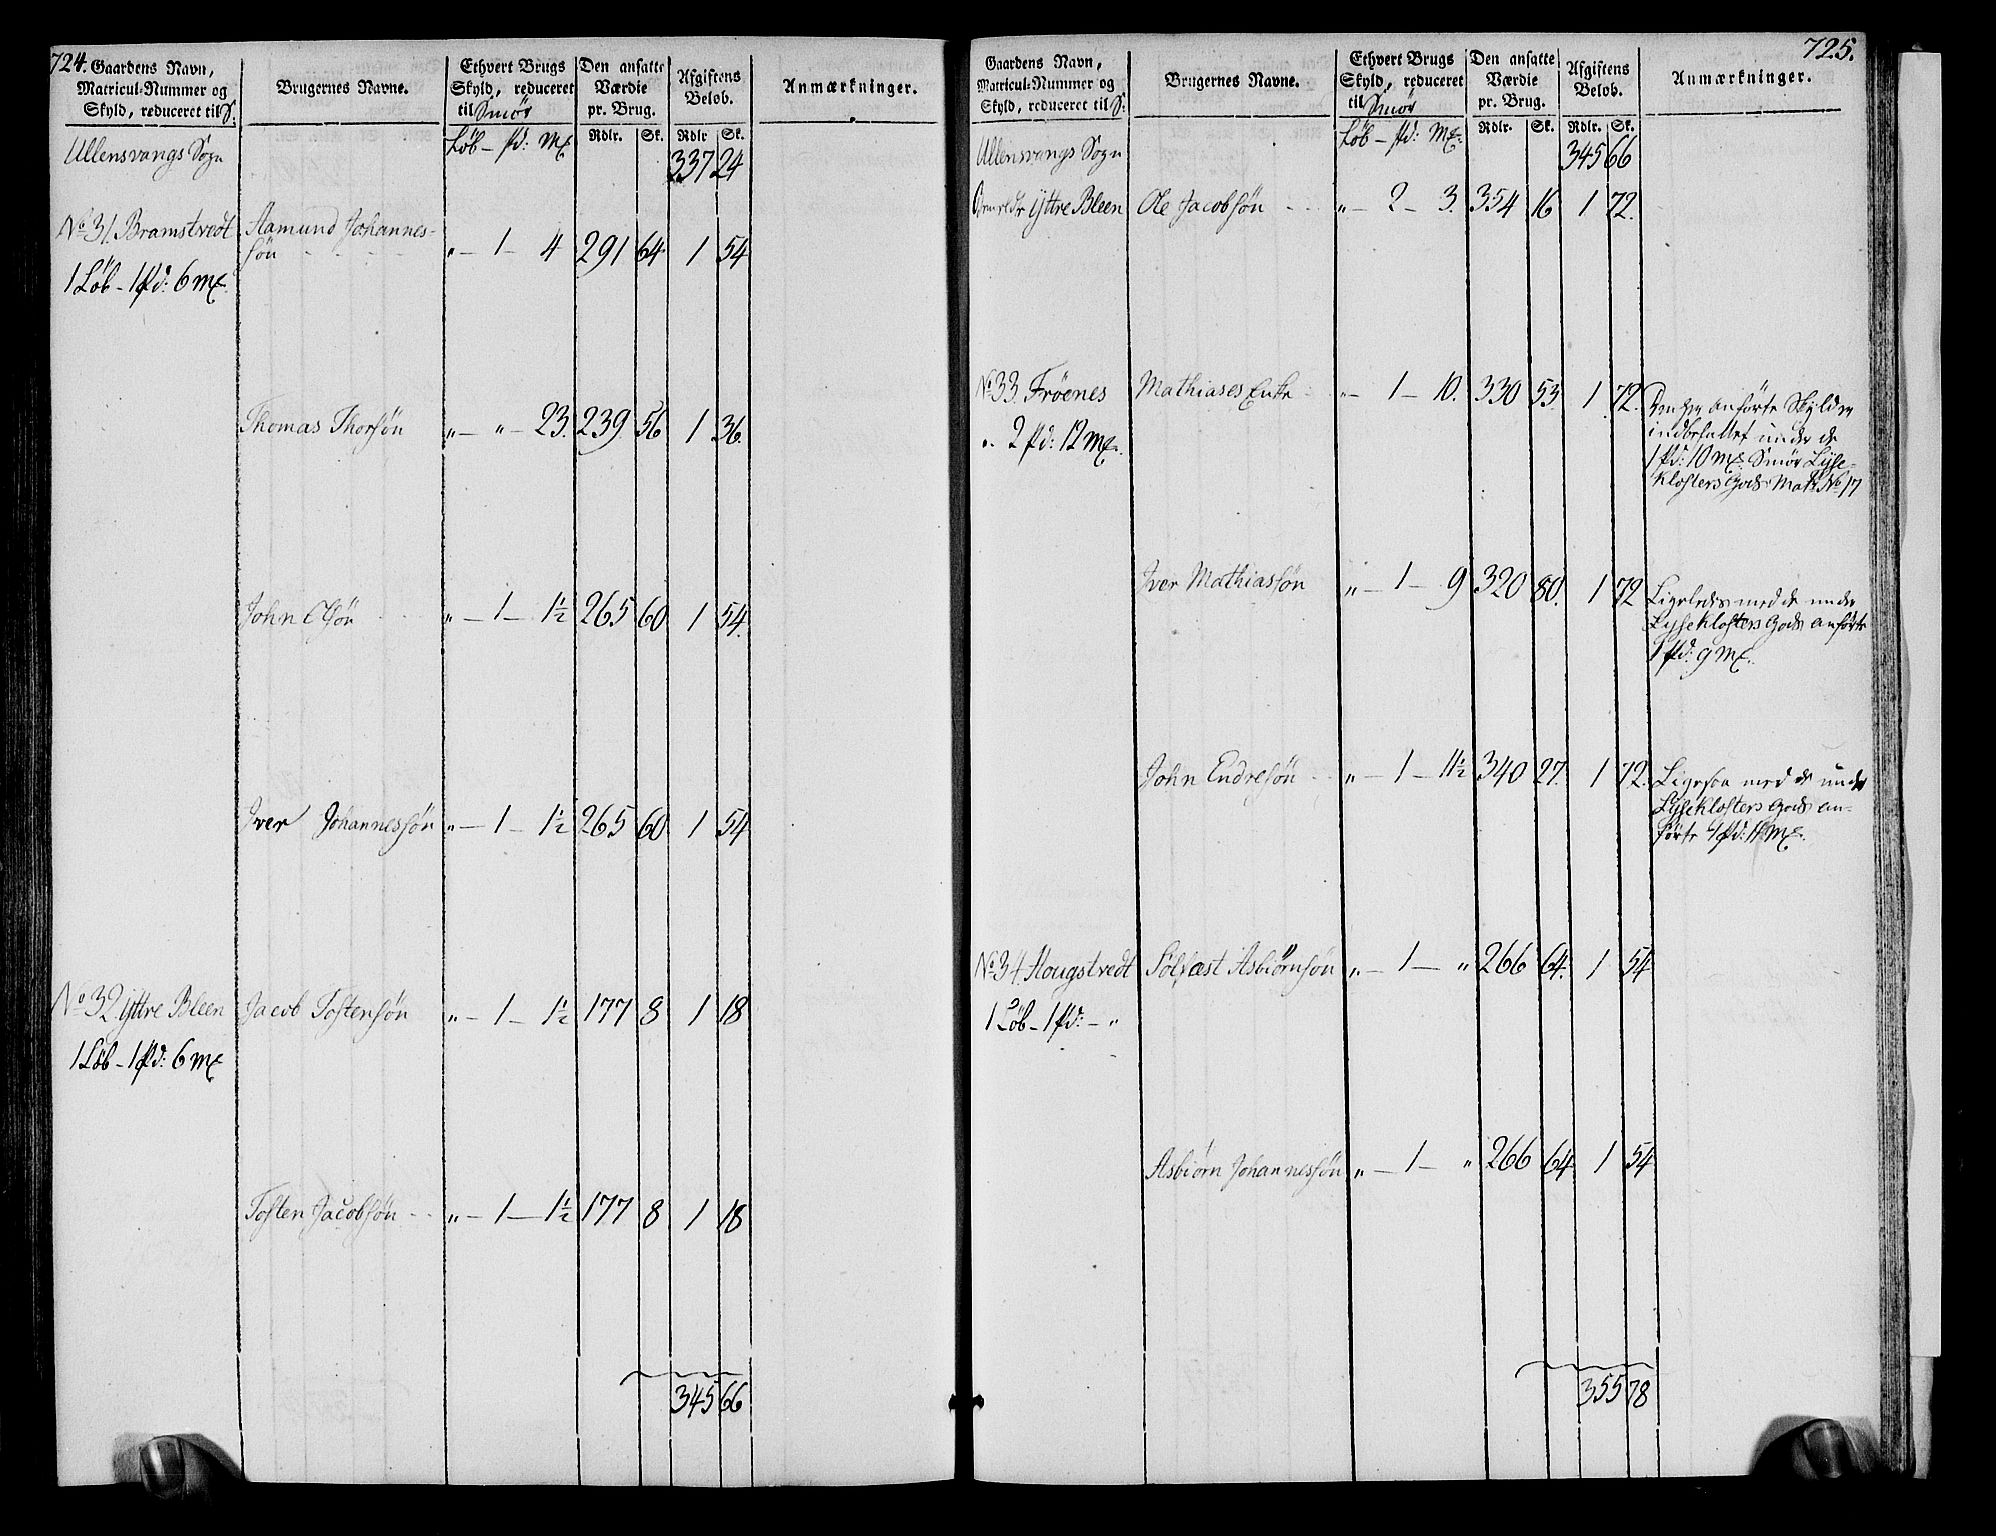 724.
Gaardens Navn,
Matricul-Nummer og
Skyld, reduceret til S:
Brugernes Navne.
Ethvert Brugs
Skyld, reduceret
til Smör
Den ansatte
Værdie
pr. Brug.
Afgiftens
Beløb.
Anmærkninger.
Rdlr. Sk. Rdlr Sk.
Ullensvangs Sogn Löb - pd: Mk 337 24
No 31. Bramstvedt Aamund Johannes-
søn " - 1 - 4 291 64 1 54
1 Löb - 1 pd: 6 mk.
Thomas Thorsøn " - " - 23. 239 56 1 36.
John Olsøn " - 1 - 1½ 265 60 1 54.
Iver Johannessøn " - 1 - 1½ 265 60 1 54
No 32 Yttre Bleen Jacob Tostensøn " - 1 - 1½ 177 8 1 18
1 Löb - 1 pd: 6 mk
Tosten Jacobsøn " - 1 - 1½ 177 8 1 18
345 66
725.
Gaardens Navn,
Matricul-Nummer og
Skyld, reduceret til S:
Brugernes Navne.
Ethvert Brugs
Skyld, reduceret
til Smör
Den ansatte
Værdie
pr. Brug.
Afgiftens
Beløb.
Anmærkninger.
Rdlr. Sk. Rdlr. Sk.
Ullensvangs Sogn Löb - pd: Mk. 345 66
Yttre Bleen Ole Jacobsøn " - 2 - 3. 354 16 1 72.
No 33. Fröenes Mathiases Enke " - 1 - 10. 330 53 1 72.
" 2 pd: 12 mk.
anførte Skyld er
indbefattet under de
1 pd: 10 mk. Smør Lyse-
klosters Gods Mat: No 17
Iver Mathiassøn " - 1 - 9 320 80. 1 72
Ligeledes med de under
Lyseklosters Gods anførte
1 pd: 9 mk.
John Endresøn " - 1 - 11½ 340 27. 1 72.
Ligesaa med de under
Lyseklosters Gods an-
førte 1 pd: 11 mk.
No 34. Hougstvedt Sölfæst Asbiørnsøn " - 1 - " 266 64. 1 54
1 Löb - 1 pd: - "
Asbiørn Johannessøn " - 1 - " 266 64 1 54
355 78